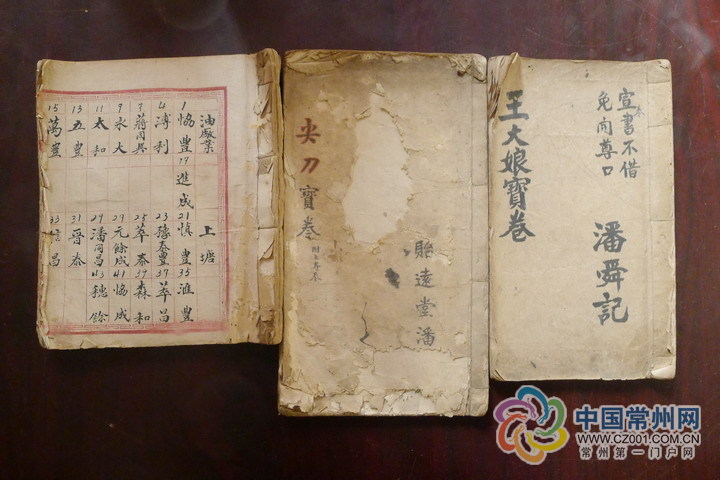 油廠業 上塘
1 協豐 17 進成 21 慎豐 35 滙豐
4 溥利 23 泰豐 37 萃昌
7 蔣同興 25 萃泰 39 森和
9 永大 27 元餘成 41 協成
11 太和 29 潘同昌 43 穗餘
13 五豐 31 晉泰
15 萬豐 33 昌
尖刀寶卷
貽遠堂潘
宣卷書不借
免開尊口
潘舜記
王大娘寶卷
中国常州网
WWW.CZ001.COM.CN
常州第一门户网